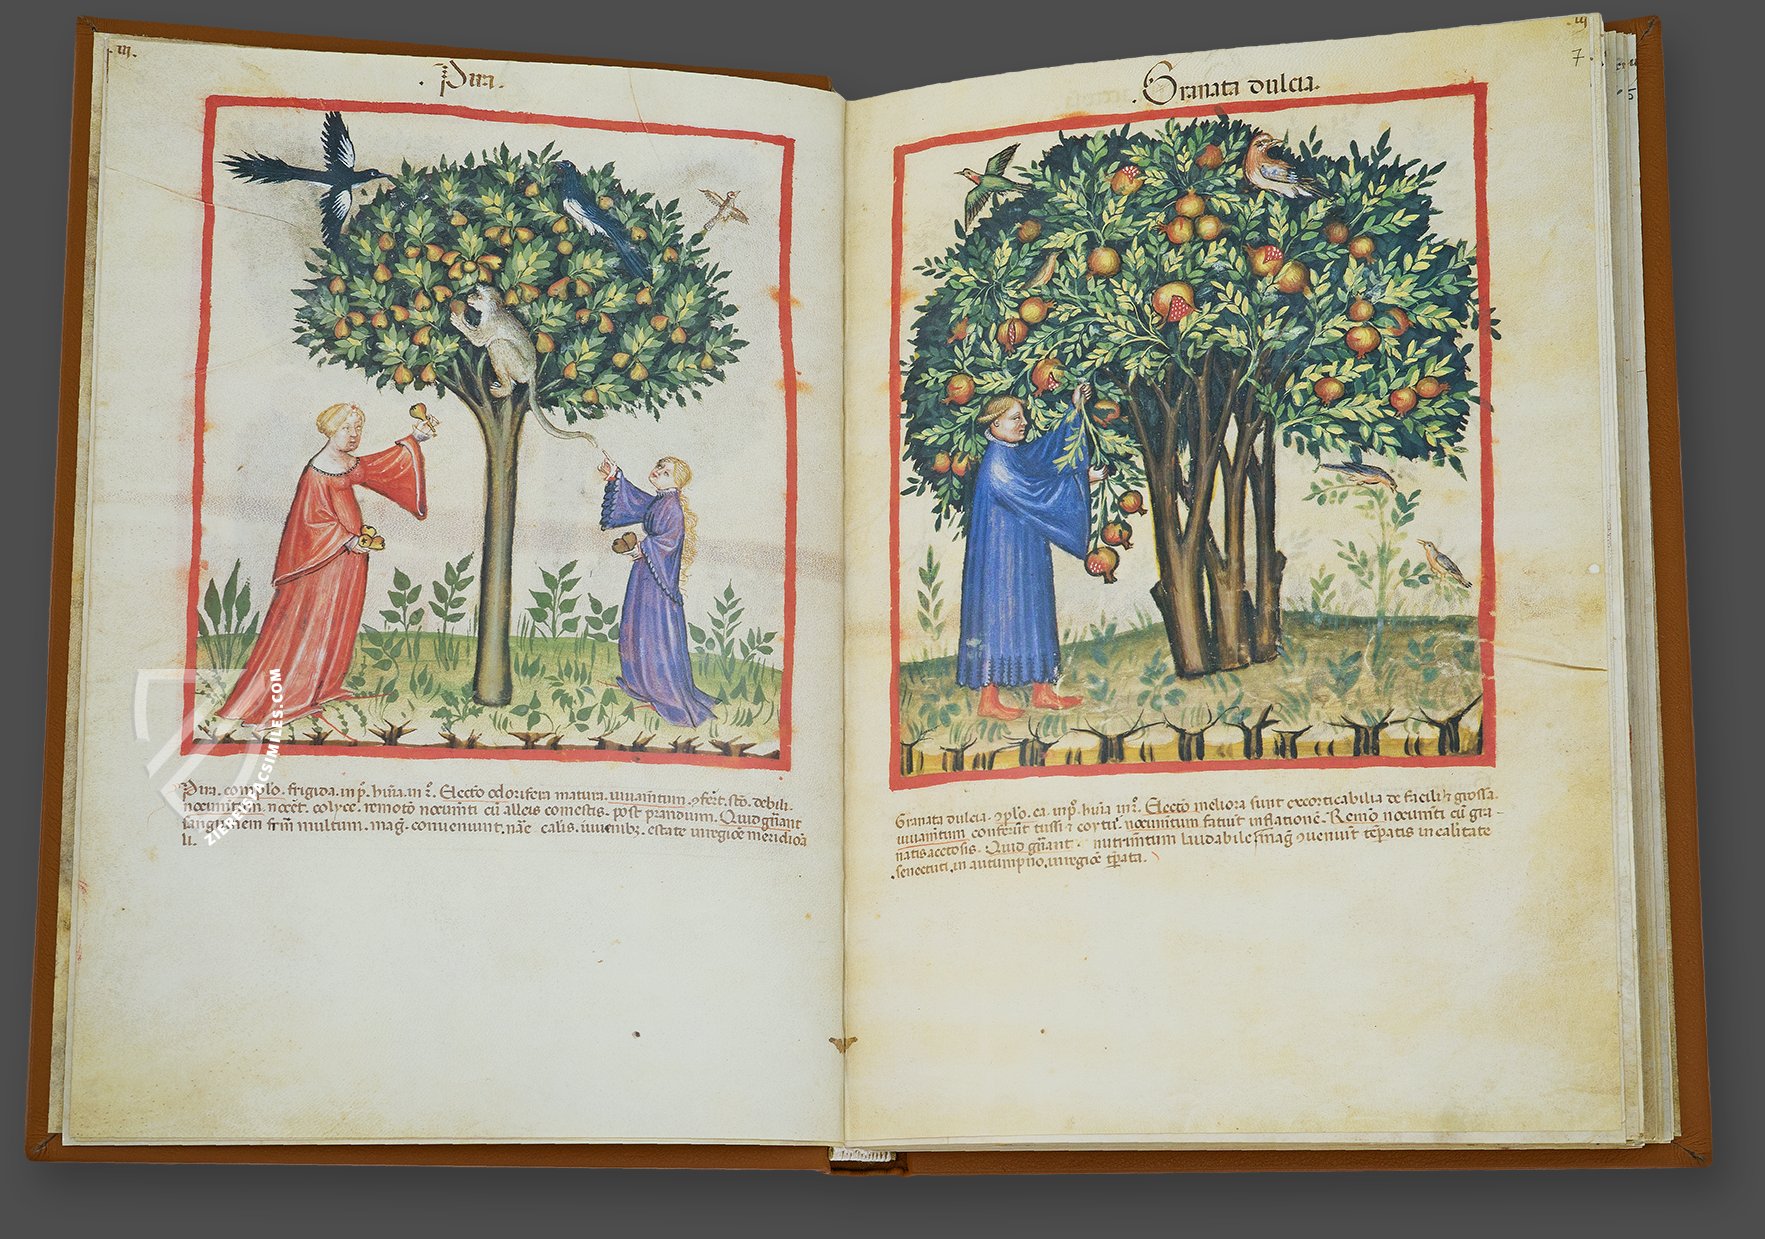 .iij.
.Pira.
Pira. complo. frigida. in p̄. hūa. in 2̄. Electō odorifera matura. iuuam̄tum. ꝯfert. stō. debili.
nocum̄tum. nocēt. colyce. remotō nocum̄ti cū alleis comestis. post prandium. Quid gn̄ant
sanguinem multum. maḡ. conueniunt. cal̄is. iuuenibꝫ. estate in regiōe meridioā
li.
7
.Granata dulcia.
Granata dulcia. ꝯplō. ca. in p̄. hūa in 2̄. Electō meliora sunt excorticabilia de facili ⁊ grossa.
iuuam̄tum conferūt tussi ⁊ nocum̄tum faciūt inflationē. Remō nocum̄ti cū gra-
natis acetosis. Quid gn̄ant. nutrim̄tum laudabile maḡ ꝯueniūt tēpatis in calitate
senectuti. in autumpno. in regiōe tēpata.
ZIEREISFACSIMILES.COM